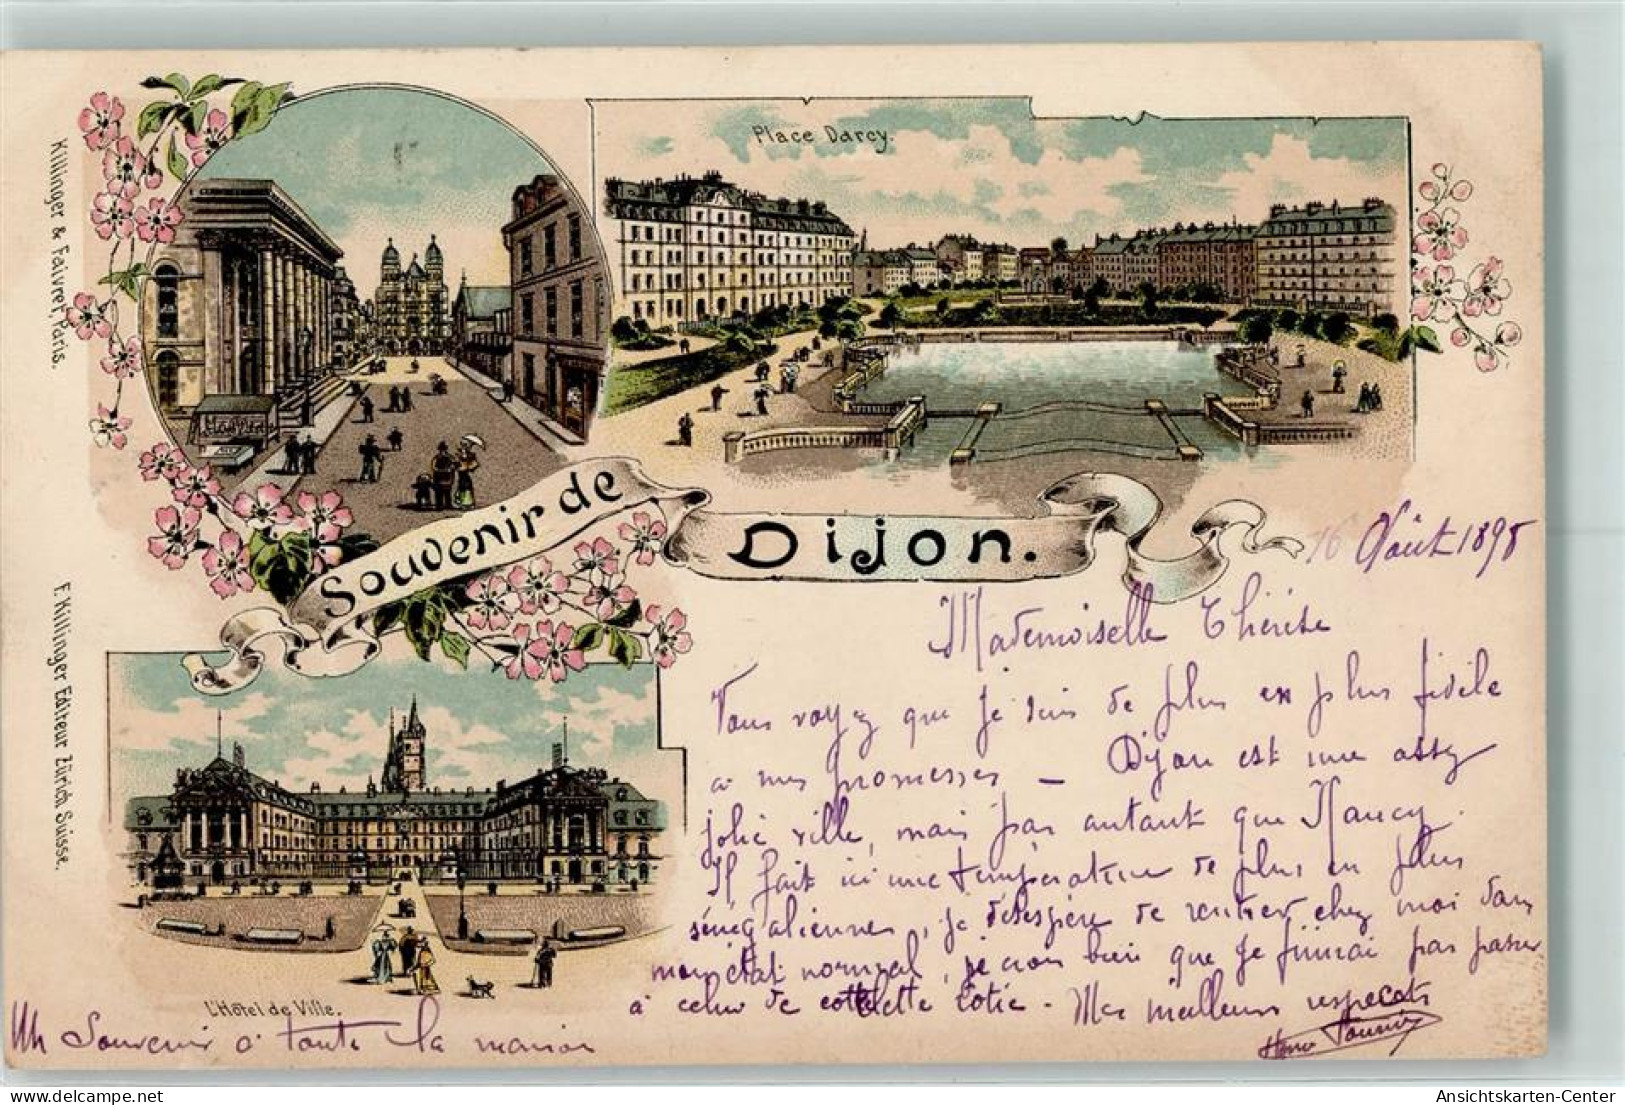 Killinger & Faivret Paris.
F. Killinger Editeur Zürich Suisse.
Place Darcy.
Souvenir de
Dijon.
L'Hôtel de Ville.
16 Août 1898
Mademoiselle Thérèse
Vous voyez que je suis de plus en plus fidèle
à mes promesses — Dijon est une assez
jolie ville, mais pas autant que Nancy.
Il fait ici une température de plus en plus
sénégaliennes, je désespère de rentrer chez moi dans
mon état normal, je crois bien que je finirai par passer
à celui de cotelette rotie. Mes meilleurs respects
Un Souvenir à toute la maison
delcampe.net
Ansichtskarten-Center